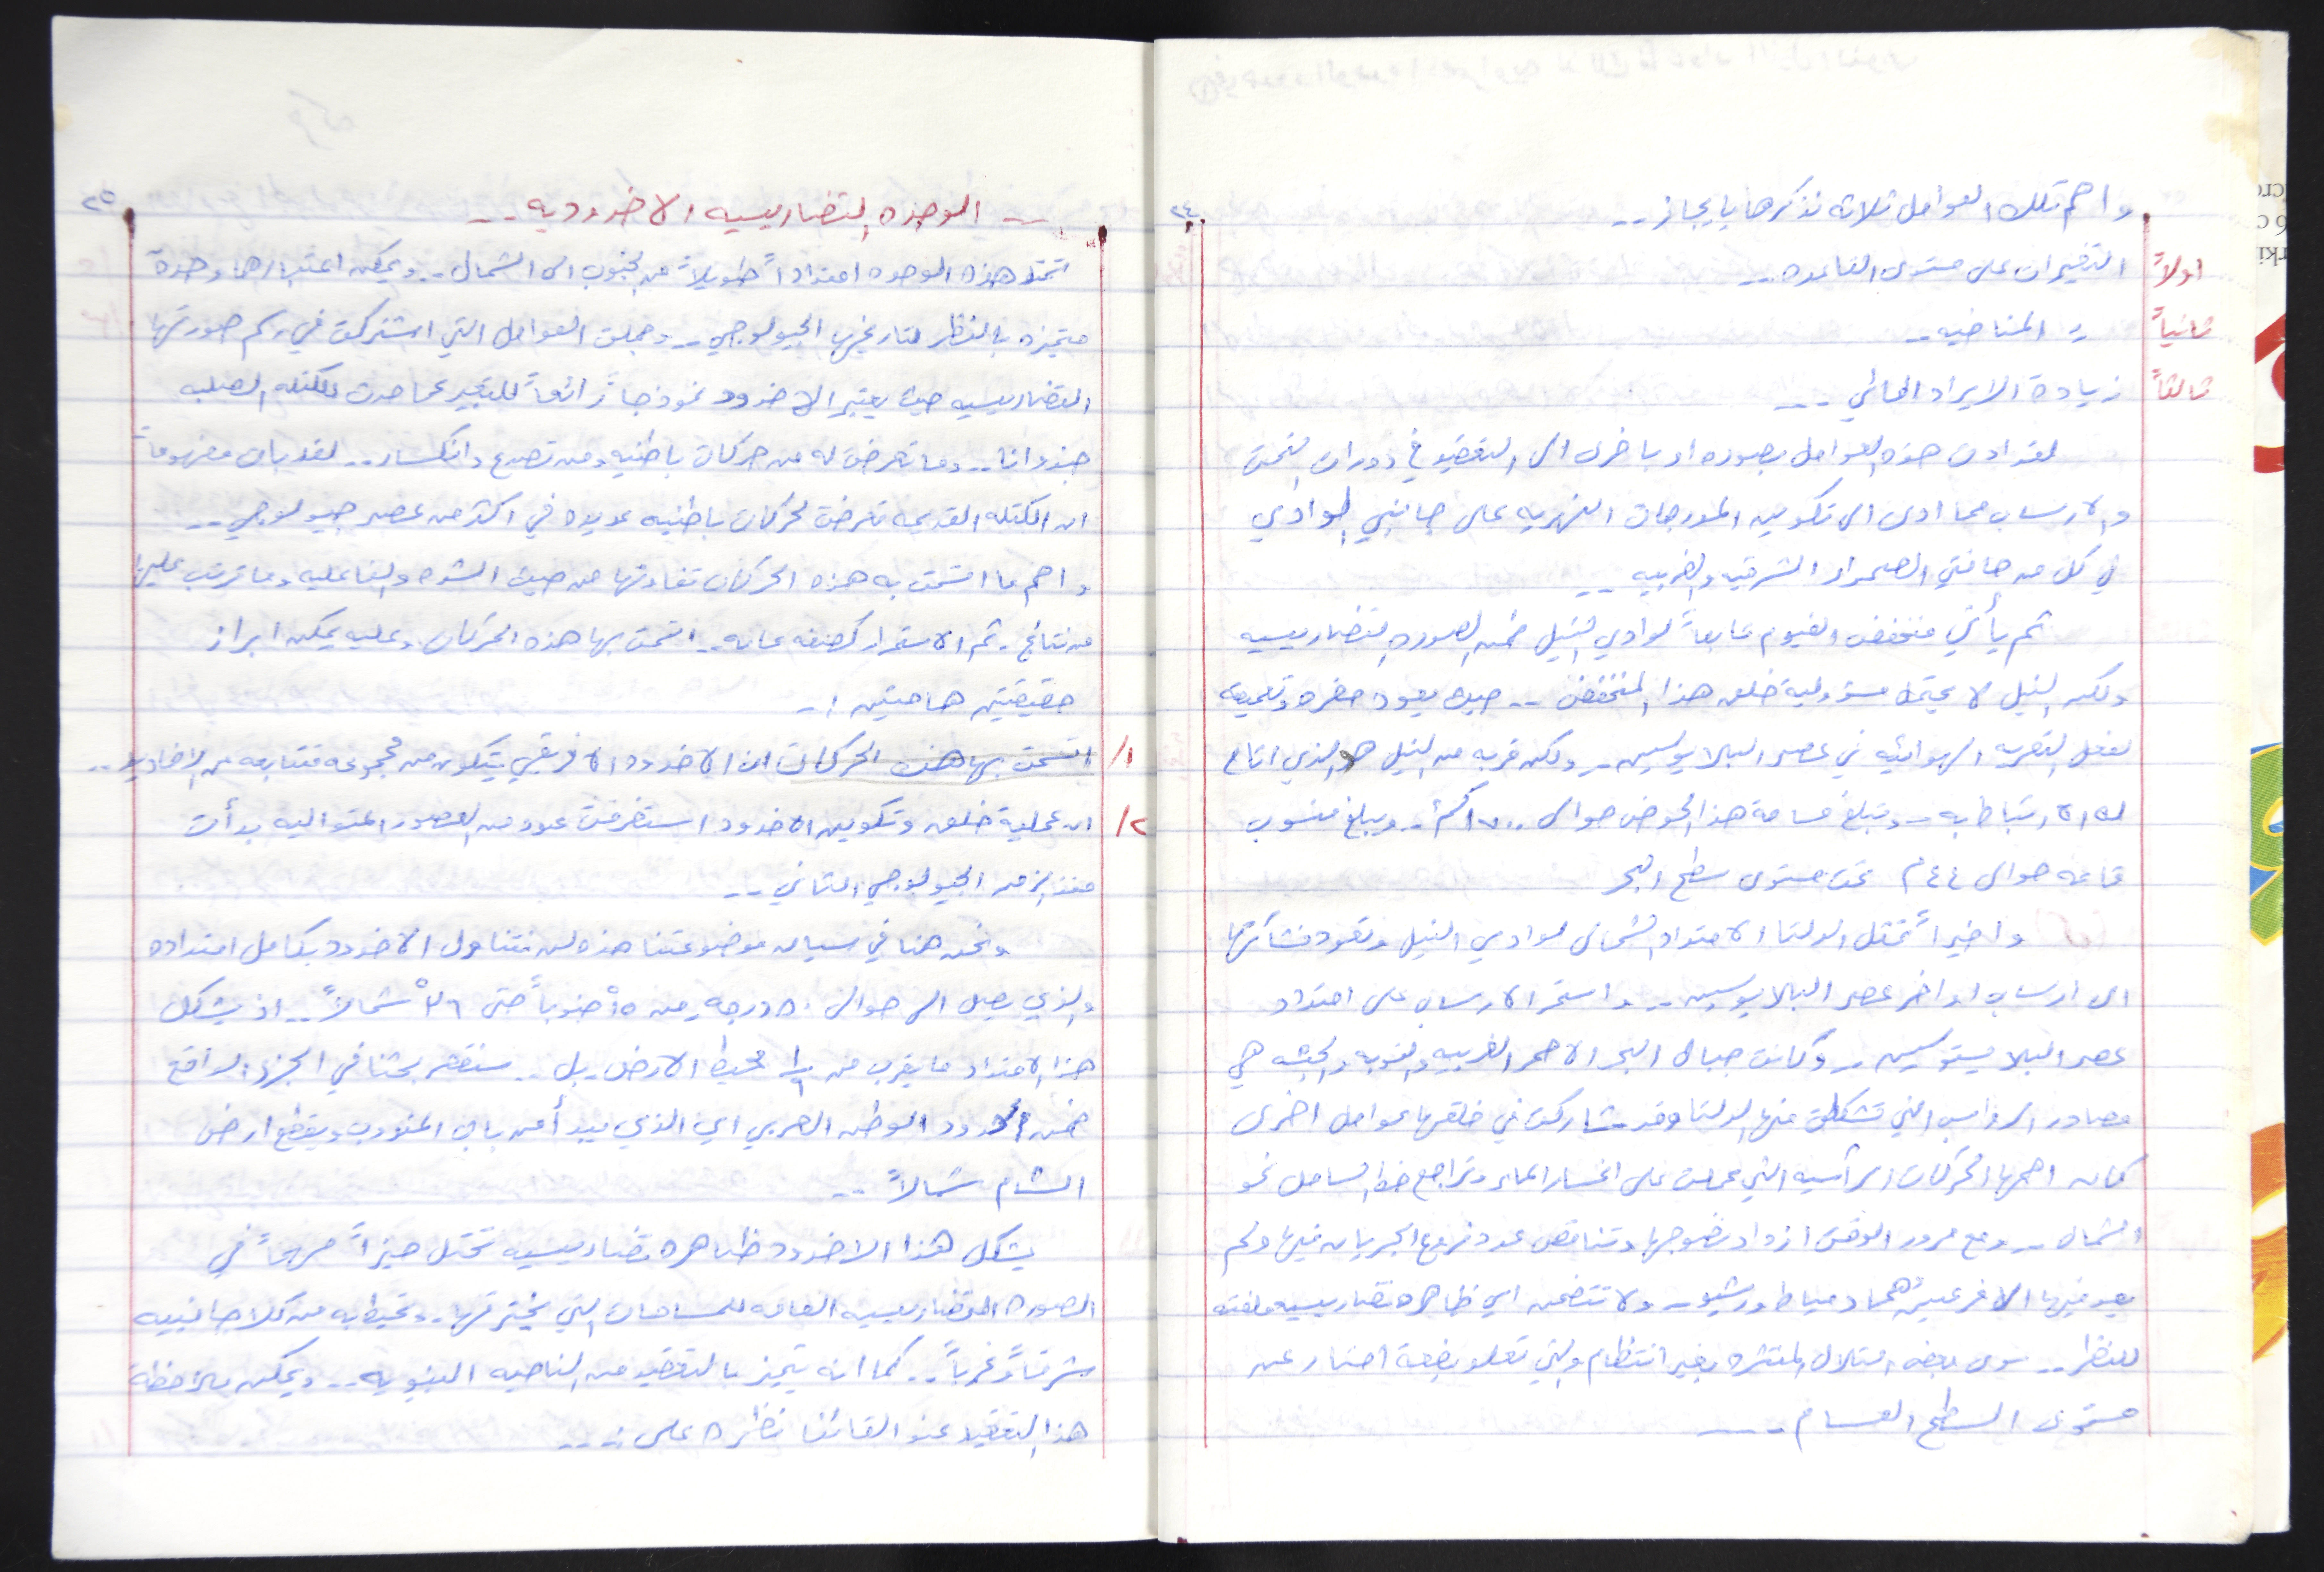 ٢٤
واهم تلك العوامل ثلاثه نذكرها بايجاز ..
اولاً التغيرات على مستوى القاعده ..
ثانياً = المناخيه ..
ثالثاً زيادة الايراد المائي ..
لقد ادت هذه العوامل بصوره او باخرى الى التعقيد في دورات النحت
والارساب مما ادى الى تكوين المدرجات النهريه على جانبي الوادي
في كل من حافتي الصحراء الشرقيه والغربيه ..
ثم يأتي منخفض الفيوم تابعاً لوادي النيل ضمن الصوره التضاريسيه
ولكن النيل لا يحتمل مسؤولية خلق هذا المنخفض .. حيث يعود حفره وتعميقه
لفعل التعريه الهوائيه في عصر البلايوسين .. ولكن قربه من النيل هو الذي اتاح
له الارتباط به .. وتبلغ مساحة هذا الحوض حوالى ١٧٠٠ كم٢ .. ويبلغ منسوب
قاعه حوالى ٤٤ م تحت مستوى سطح البحر
واخيراً تمثل الدلتا الامتداد الشمالى لوادي النيل وتعود نشأتها
الى ارساب اواخر عصر البلايوسين .. واستمر الارساب على امتداد
عصر البلايستوسين .. وكانت جبال البحر الاحمر الغربيه والنوبه والحبشه هي
مصادر الرواسب التي تشكلت منها الدلتا وقد شاركت في خلقها عوامل اخرى
كان اهمها الحركات الرأسيه التي عملت على انحسار الماء وتراجع خط الساحل نحو
الشمال .. ومع مرور الوقت ازداد نضوجها وتناقص عدد فروع الجريان فيها ولم
يعد فيها الا فرعين هما دمياط ورشيد .. ولا تتضمن اي ظاهره تضاريسيه ملفته
للنظر .. سوى بعض التلال المنتشره بغير انتظام والتي تعلو بضعة امتار عن
مستوى السطح العسام ..
٢٥
.. الوحده التضاريسيه الاخدوديه ..
تمتد هذه الوحده امتداداً طويلاً من الجنوب الى الشمال .. ويمكن اعتبارها وحدة
متميزه بالنظر لتاريخها الجيولوجي .. وجملة العوامل التي اشتركت في رسم صورتها
التضاريسيه حيث يعتبر الاخدود نموذجاً رائعاً للتعبير عما حدث للكتله الصلبه
جندوانا .. وما تعرضت له من حركات باطنيه ومن تصدع وانكسار .. لقد بات مفهوماً
ان الكتله القديمه تعرضت لحركات باطنيه عديده في اكثر من عصر جيولوجي ..
واهم ما اتسمت به هذه الحركات تفاوتها من حيث الشده والفاعليه وما ترتب عليها
من نتائج . ثم الاستمرار كصفه عامه .. اتسمت بها هذه الحركات وعليه يمكن ابراز
حقيقتين هامتين :-
١/ اتسمت بها هذه الحركات ان الاخدود الافريقي يتكون من مجموعه متتابعه من الاخاديد ..
٢/ ان عملية خلق وتكوين الاخدود استغرقت عدد من العصور المتواليه بدأت
منذ الزمن الجيولوجي الثاني ..
ونحن هنا في سياق موضوعتنا هذه لن نتناول الاخدود بكامل امتداده
والذي يصل الى حوالى ٥٠ درجه من ١٥° جنوباً حتى ٣٦° شمالاً .. اذ يشكل
هذا الامتداد ما يقرب من محيط الارض . بل .. سنقصر بحثنا في الجزء الواقع
ضمن حدود الوطن العربي اي الذي يبدأ من باب المندوب ويقطع ارض
الشام شمالاً ..
يشكل هذا الاخدود ظاهره تضاريسيه تحتل حيزاً مهماً في
الصوره التضاريسيه العامه للمساحات التي يخترقها .. وتحيط به من كلا جانبيه
شرقاً وغرباً .. كما انه يتميز بالتعقيد من الناحيه البنيويه .. ويمكن ملاحظة
هذا التعقيد عند القائنا نظره على : ..